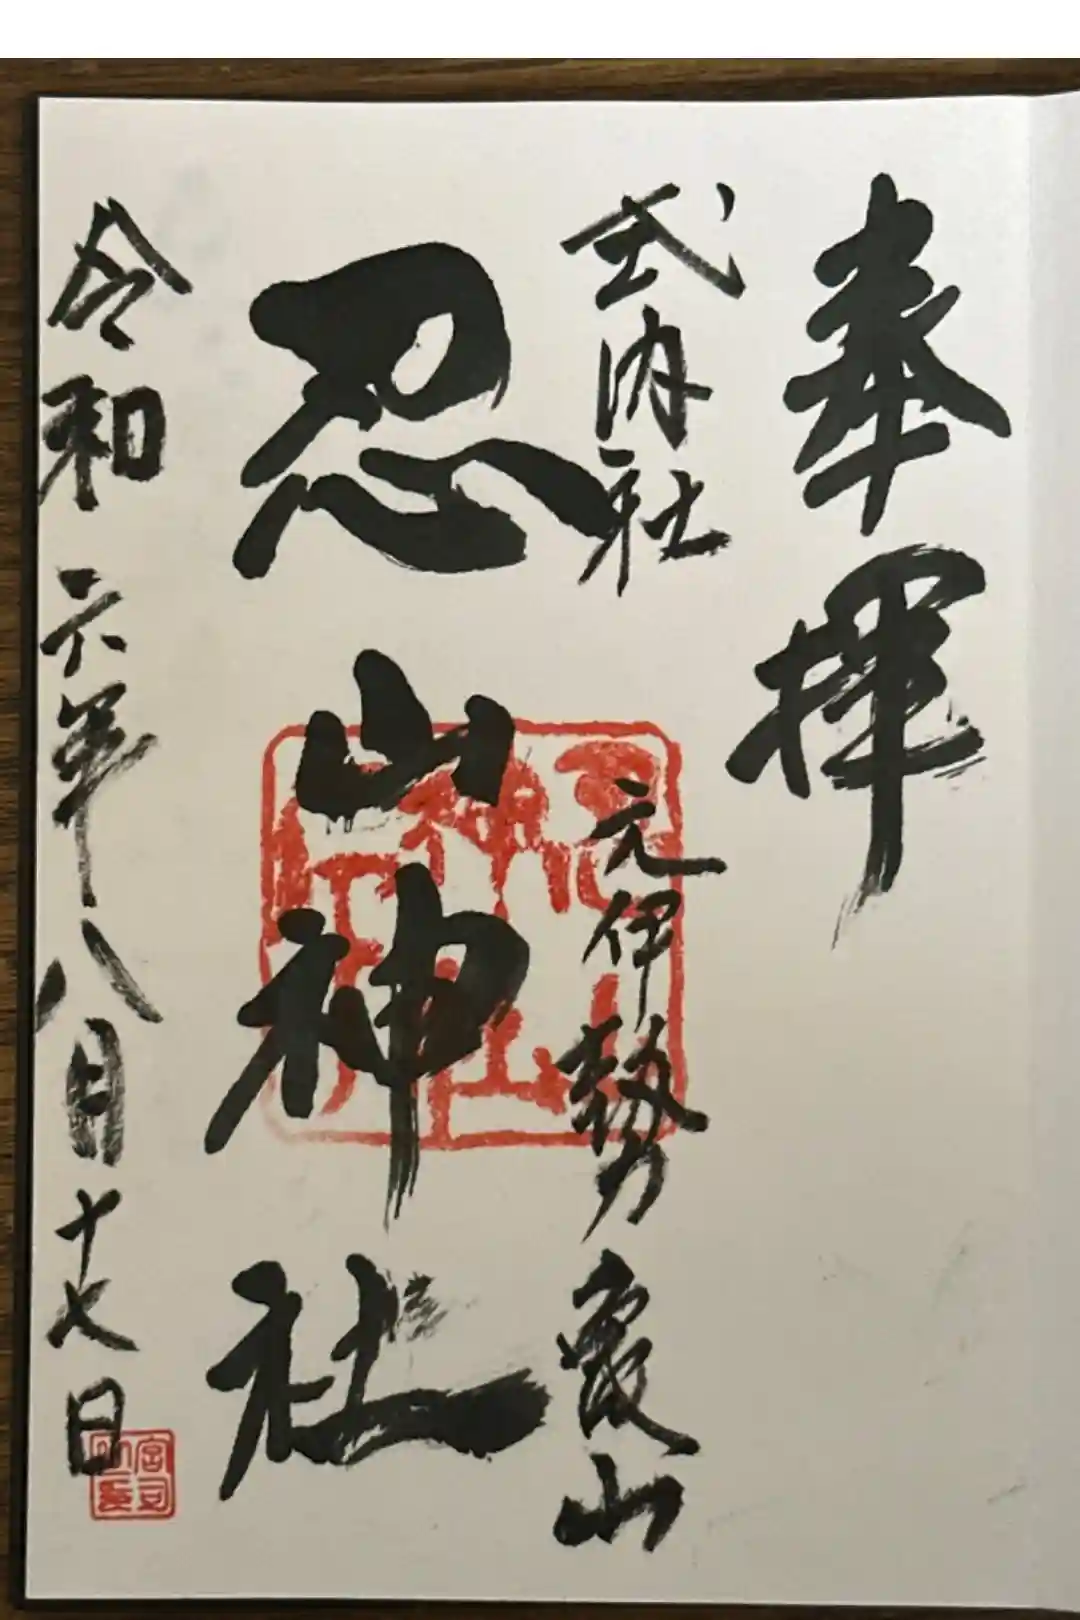 奉拝
式内社 元伊勢 亀山
忍山神社
令和六年八月十七日
忍山神社
宮司